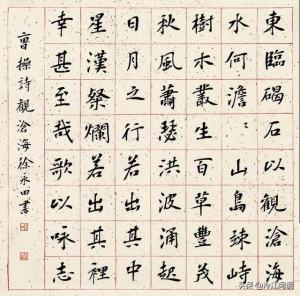 東臨碣石以觀滄海
水何澹〻山島竦峙
樹木叢生百草豐茂
秋風蕭瑟洪波涌起
日月之行若出其中
星漢粲爛若出其裡
幸甚至哉歌以咏志
曹操詩觀滄海徐永田書
头条